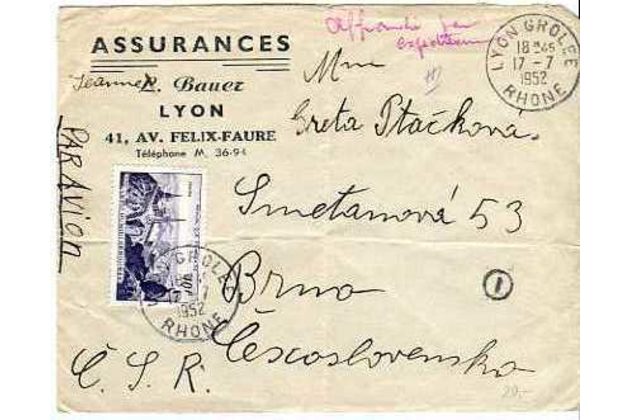 ASSURANCES
Jeanne R. Bauer
LYON
41, AV. FELIX-FAURE
Téléphone M. 36-94
PAR AVION
Affranchi par
expéditeur
LYON GROLÉE
18 H 45
17 - 7
1952
RHONE
Mme
Greta Ptačková
Smetanová 53
Brno
Československo
Č. S. R.
LYON GROLÉE
17 - 7
1952
RHONE
1
20,-